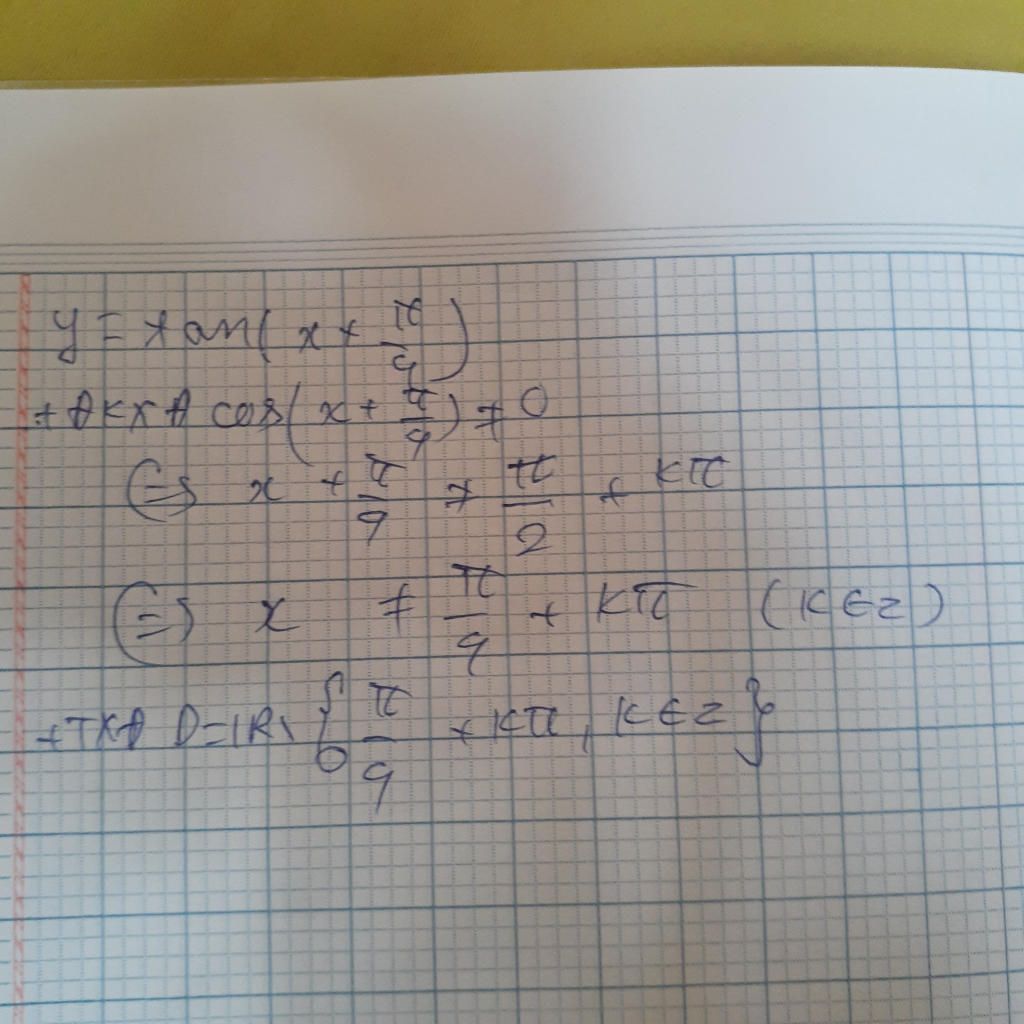 y = tan(x + π/4)
+ ĐKXĐ cos(x + π/4) ≠ 0
⇔ x + π/4 ≠ π/2 + kπ
⇔ x ≠ π/4 + kπ (k ∈ Z)
+ TXĐ D = ℝ \ {π/4 + kπ, k ∈ Z}